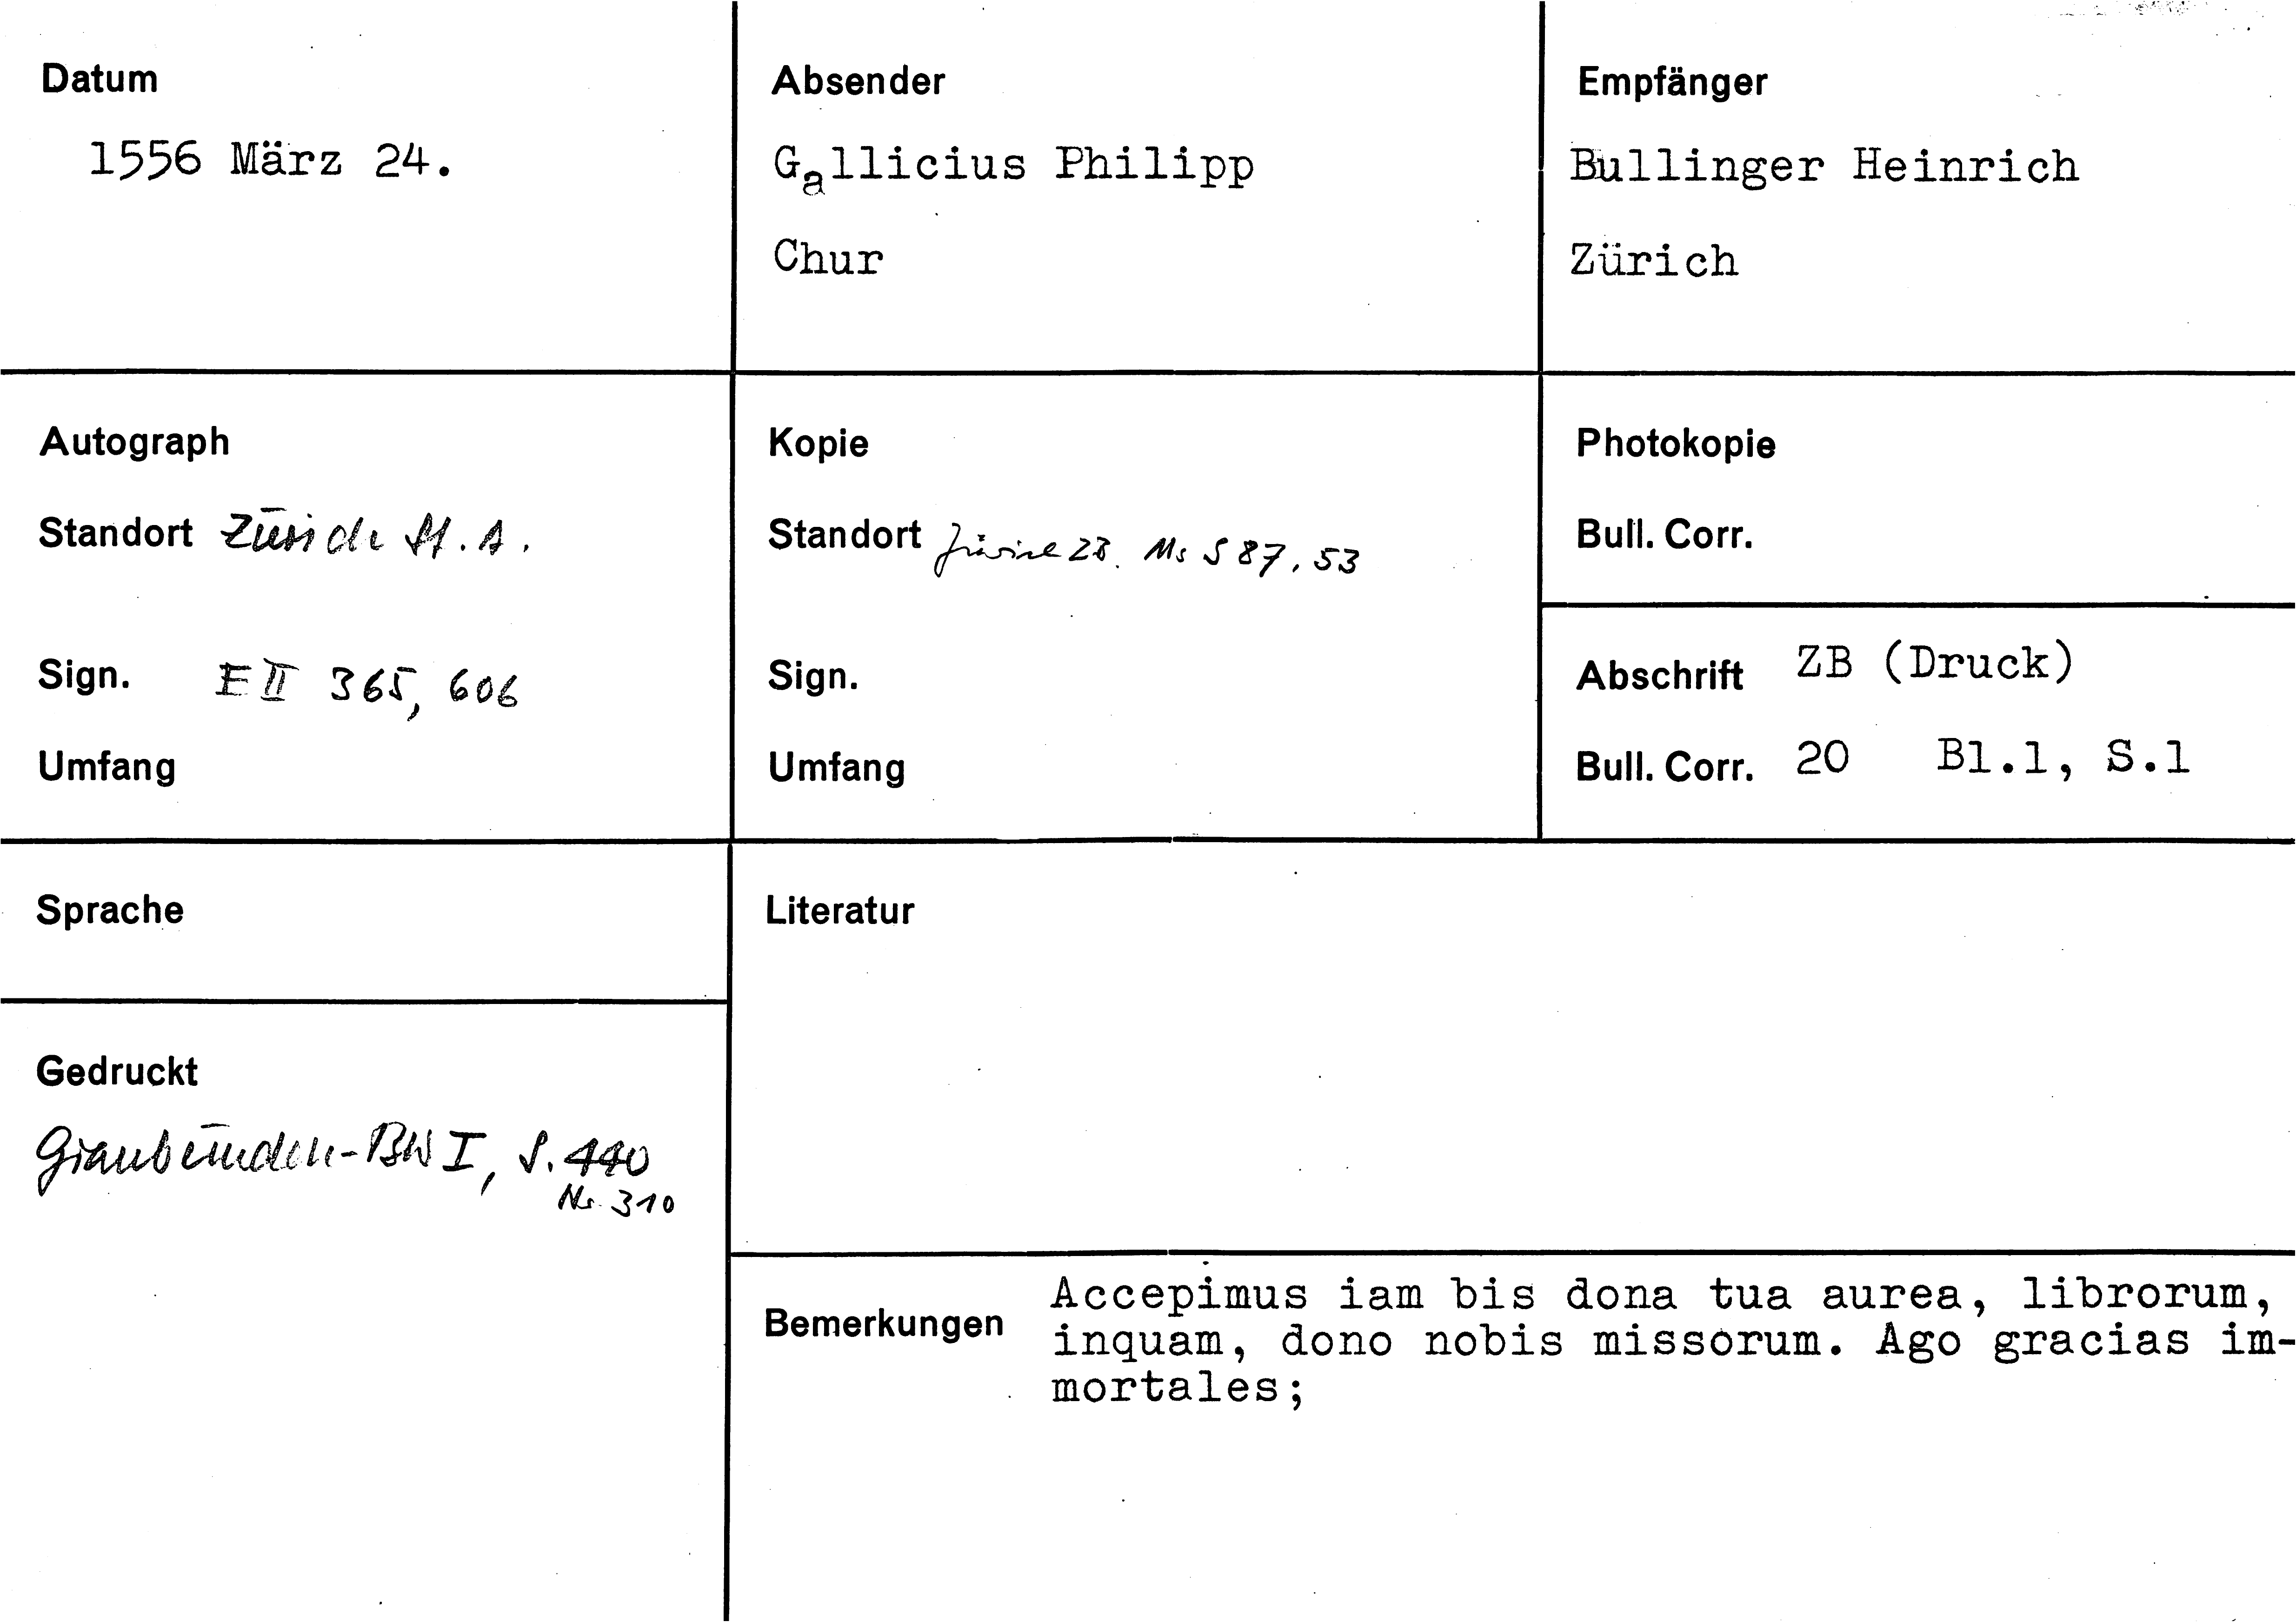 Datum
1556 März 24.
Absender
Gallicius Philipp
Chur
Empfänger
Bullinger Heinrich
Zürich
Autograph
Standort Zürich St. A.
Sign. E II 365, 606
Umfang
Kopie
Standort Zürich ZB. Ms S 87, 53
Sign.
Umfang
Photokopie
Bull. Corr.
Abschrift ZB (Druck)
Bull. Corr. 20 Bl.1, S.1
Sprache
Gedruckt
Graubünden-BW I, S. 440
Nr. 310
Literatur
Bemerkungen
Accepimus iam bis dona tua aurea, librorum,
inquam, dono nobis missorum. Ago gracias im-
mortales;